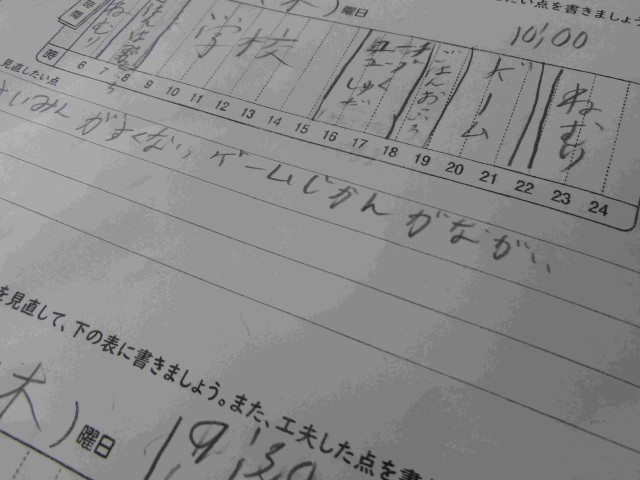 (木)曜日
たい点を書きましょう
10:00
時間
ねむり
学校
ごはんおふろ
ゲーム
ねむり
時 6 7 8 9 10 11 12 13 14 15 16 17 18 19 20 21 22 23 24
見直したい点
すいみんがすくない ゲームじかんがながい
を見直して、下の表に書きましょう。また、工夫した点を書
(木)曜日
9:30